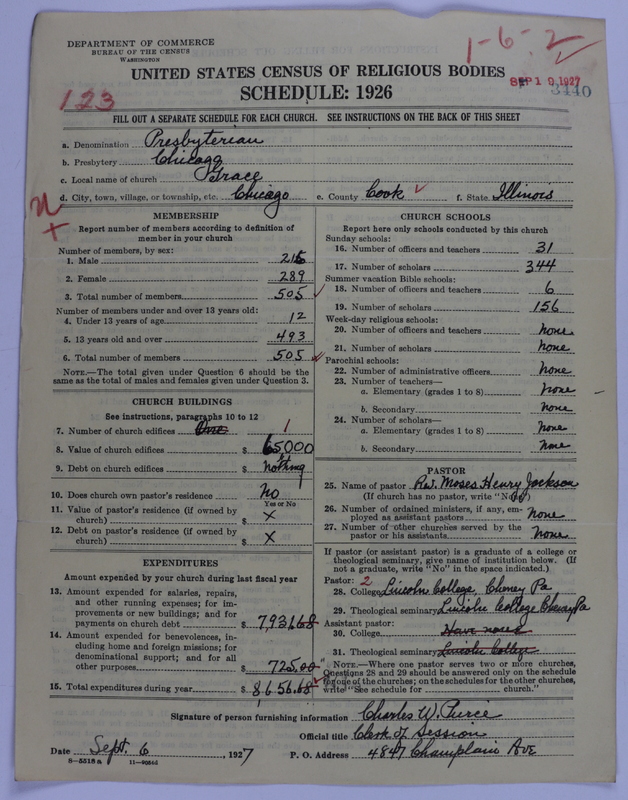 DEPARTMENT OF COMMERCE
BUREAU OF THE CENSUS
WASHINGTON
1-6-2
UNITED STATES CENSUS OF RELIGIOUS BODIES
SEP 19 1927
3440
123
SCHEDULE: 1926
FILL OUT A SEPARATE SCHEDULE FOR EACH CHURCH. SEE INSTRUCTIONS ON THE BACK OF THIS SHEET
a. Denomination Presbyterian
b. Presbytery Chicago
c. Local name of church Grace
d. City, town, village, or township, etc. Chicago e. County Cook f. State Illinois
MEMBERSHIP
Report number of members according to definition of
member in your church
Number of members, by sex:
1. Male 216
2. Female 289
3. Total number of members 505
Number of members under and over 13 years old:
4. Under 13 years of age 12
5. 13 years old and over 493
6. Total number of members 505
NOTE.—The total given under Question 6 should be
same as the total of males and females given under Question 3.
CHURCH BUILDINGS
See instructions, paragraphs 10 to 12
7. Number of church edifices One 1
8. Value of church edifices $ 65000
9. Debt on church edifices $ nothing
10. Does church own pastor's residence No
Yes or No
11. Value of pastor's residence (if owned by
church) $ X
12. Debt on pastor's residence (if owned by
church) $ X
EXPENDITURES
Amount expended by your church during last fiscal year
13. Amount expended for salaries, repairs,
and other running expenses; for im-
provements or new buildings; and for
payments on church debt $ 7,931.68
14. Amount expended for benevolences, in-
cluding home and foreign missions; for
denominational support; and for all
other purposes $ 725.00
15. Total expenditures during year $ 8,656.68
CHURCH SCHOOLS
Report here only schools conducted by this church
Sunday schools:
16. Number of officers and teachers 31
17. Number of scholars 344
Summer vacation Bible schools:
18. Number of officers and teachers 6
19. Number of scholars 156
Week-day religious schools:
20. Number of officers and teachers None
21. Number of scholars None
Parochial schools:
22. Number of administrative officers None
23. Number of teachers—
a. Elementary (grades 1 to 8) None
b. Secondary None
24. Number of scholars—
a. Elementary (grades 1 to 8) None
b. Secondary None
PASTOR
25. Name of pastor Rev. Moses Henry Jackson
(If church has no pastor, write "No")
26. Number of ordained ministers, if any, em-
ployed as assistant pastors None
27. Number of other churches served by the
pastor or his assistants None
If pastor (or assistant pastor) is a graduate of a college or
theological seminary, give name of institution below. (If
not a graduate, write "No" in the space indicated.)
Pastor: 2
28. College Lincoln College, Cheney Pa
29. Theological seminary Lincoln College Cheney Pa
Assistant pastor:
30. College Have none
31. Theological seminary Lincoln College
NOTE.—Where one pastor serves two or more churches,
Questions 28 and 29 should be answered only on the schedule
for one of the churches; on the schedules for the other churches,
write "See schedule for church."
Signature of person furnishing information Charles W. Pierce
Official title Clerk of Session
Date Sept. 6, 1927 P. O. Address 4847 Champlain Ave
8-5518a 11-90548